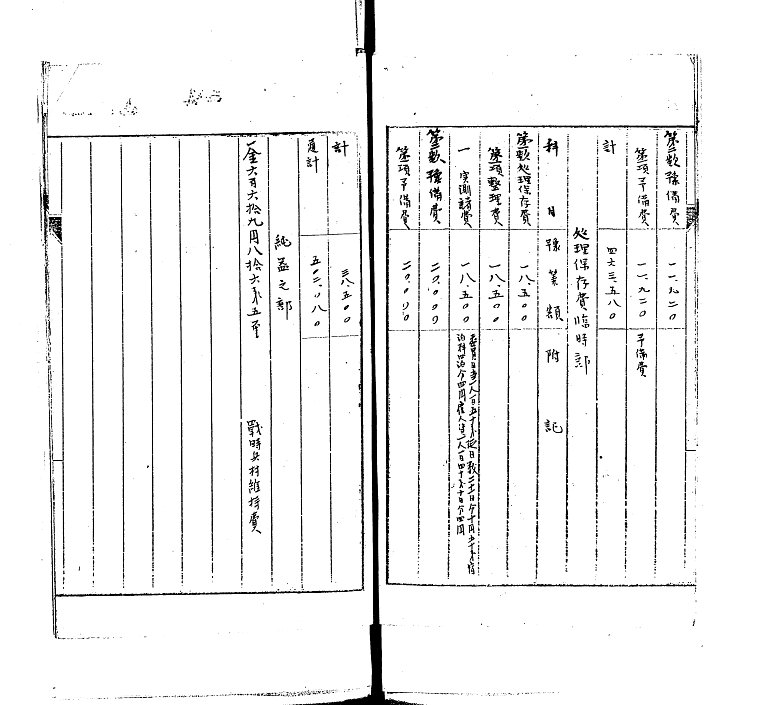 第三款豫備費 一一、九二〇
第一項予備費 一一、九二〇 予備費
計 四六三、五八〇
処理保存費臨時部
科目 豫算額 附記
第一款処理保存費 一八、五〇〇
第一項整理費 一八、五〇〇
一 実測諸費 一八、五〇〇
第二款豫備費 二〇、〇〇〇
第一項予備費 二〇、〇〇〇
計 三八、五〇〇
通計 五〇二、〇八〇
純益之部
一金六百六拾九円八拾六銭五厘 戰時共村維持費